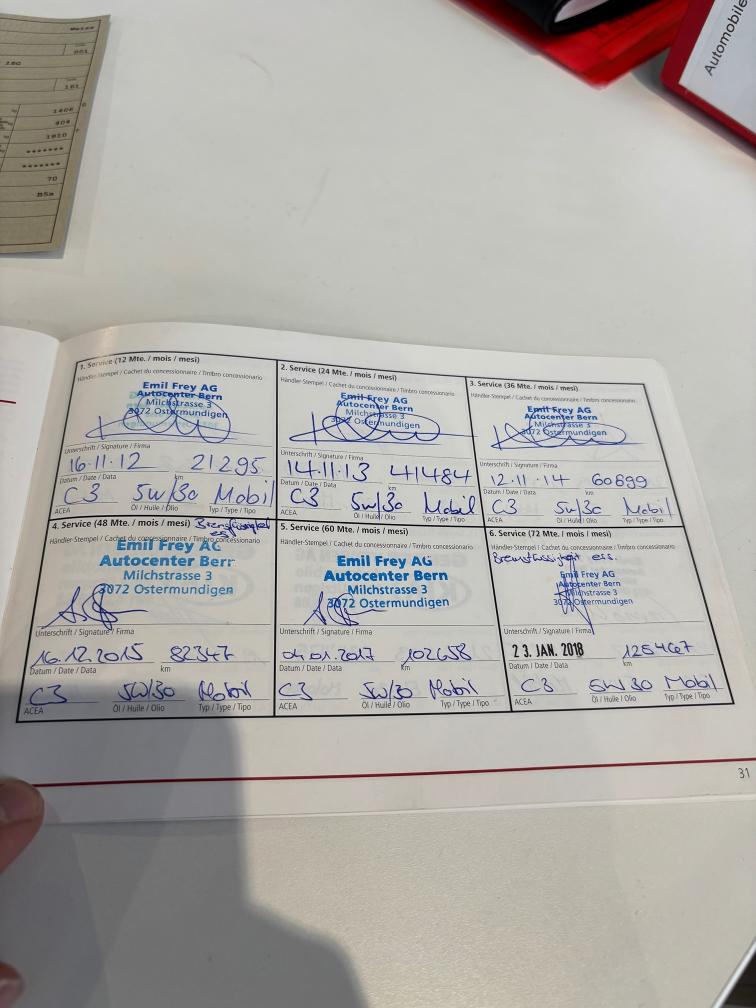 Automobile
001
180
161
1406
404
1810
*******
*******
70
B5a
1. Service (12 Mte. / mois / mesi)
Händler-Stempel / Cachet du concessionnaire / Timbro concessionario
Emil Frey AG
Autocenter Bern
Milchstrasse 3
3072 Ostermundigen
Unterschrift / Signature / Firma
16.11.12 21295
Datum / Date / Data km
C3 5W/30 Mobil
ACEA Öl / Huile / Olio Typ / Type / Tipo
2. Service (24 Mte. / mois / mesi)
Händler-Stempel / Cachet du concessionnaire / Timbro concessionario
Emil Frey AG
Autocenter Bern
Milchstrasse 3
3072 Ostermundigen
Unterschrift / Signature / Firma
14.11.13 41484
Datum / Date / Data km
C3 5W/30 Mobil
ACEA Öl / Huile / Olio Typ / Type / Tipo
3. Service (36 Mte. / mois / mesi)
Händler-Stempel / Cachet du concessionnaire / Timbro concessionario
Emil Frey AG
Autocenter Bern
Milchstrasse 3
3072 Ostermundigen
Unterschrift / Signature / Firma
12.11.14 60899
Datum / Date / Data km
C3 5W/30 Mobil
ACEA Öl / Huile / Olio Typ / Type / Tipo
4. Service (48 Mte. / mois / mesi) Bremsflüssigkeit
ess.
Händler-Stempel / Cachet du concessionnaire / Timbro concessionario
Emil Frey AG
Autocenter Bern
Milchstrasse 3
3072 Ostermundigen
Unterschrift / Signature / Firma
16.12.2015 82347
Datum / Date / Data km
C3 5W/30 Mobil
ACEA Öl / Huile / Olio Typ / Type / Tipo
5. Service (60 Mte. / mois / mesi)
Händler-Stempel / Cachet du concessionnaire / Timbro concessionario
Emil Frey AG
Autocenter Bern
Milchstrasse 3
3072 Ostermundigen
Unterschrift / Signature / Firma
04.01.2017 102658
Datum / Date / Data km
C3 5W/30 Mobil
ACEA Öl / Huile / Olio Typ / Type / Tipo
6. Service (72 Mte. / mois / mesi)
Händler-Stempel / Cachet du concessionnaire / Timbro concessionario
Bremsflüssigkeit ess.
Emil Frey AG
Autocenter Bern
Milchstrasse 3
3072 Ostermundigen
Unterschrift / Signature / Firma
23. JAN. 2018 125467
Datum / Date / Data km
C3 5W/30 Mobil
ACEA Öl / Huile / Olio Typ / Type / Tipo
31